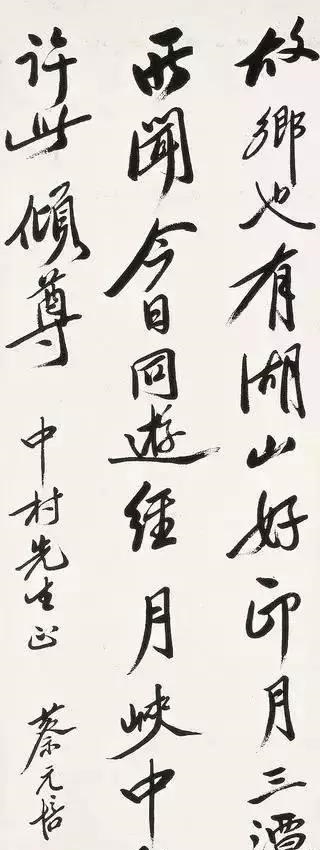 故鄉也有湖山好印月三潭
所聞今日同遊經月峽中
許此傾尊
中村先生正 蔡元培